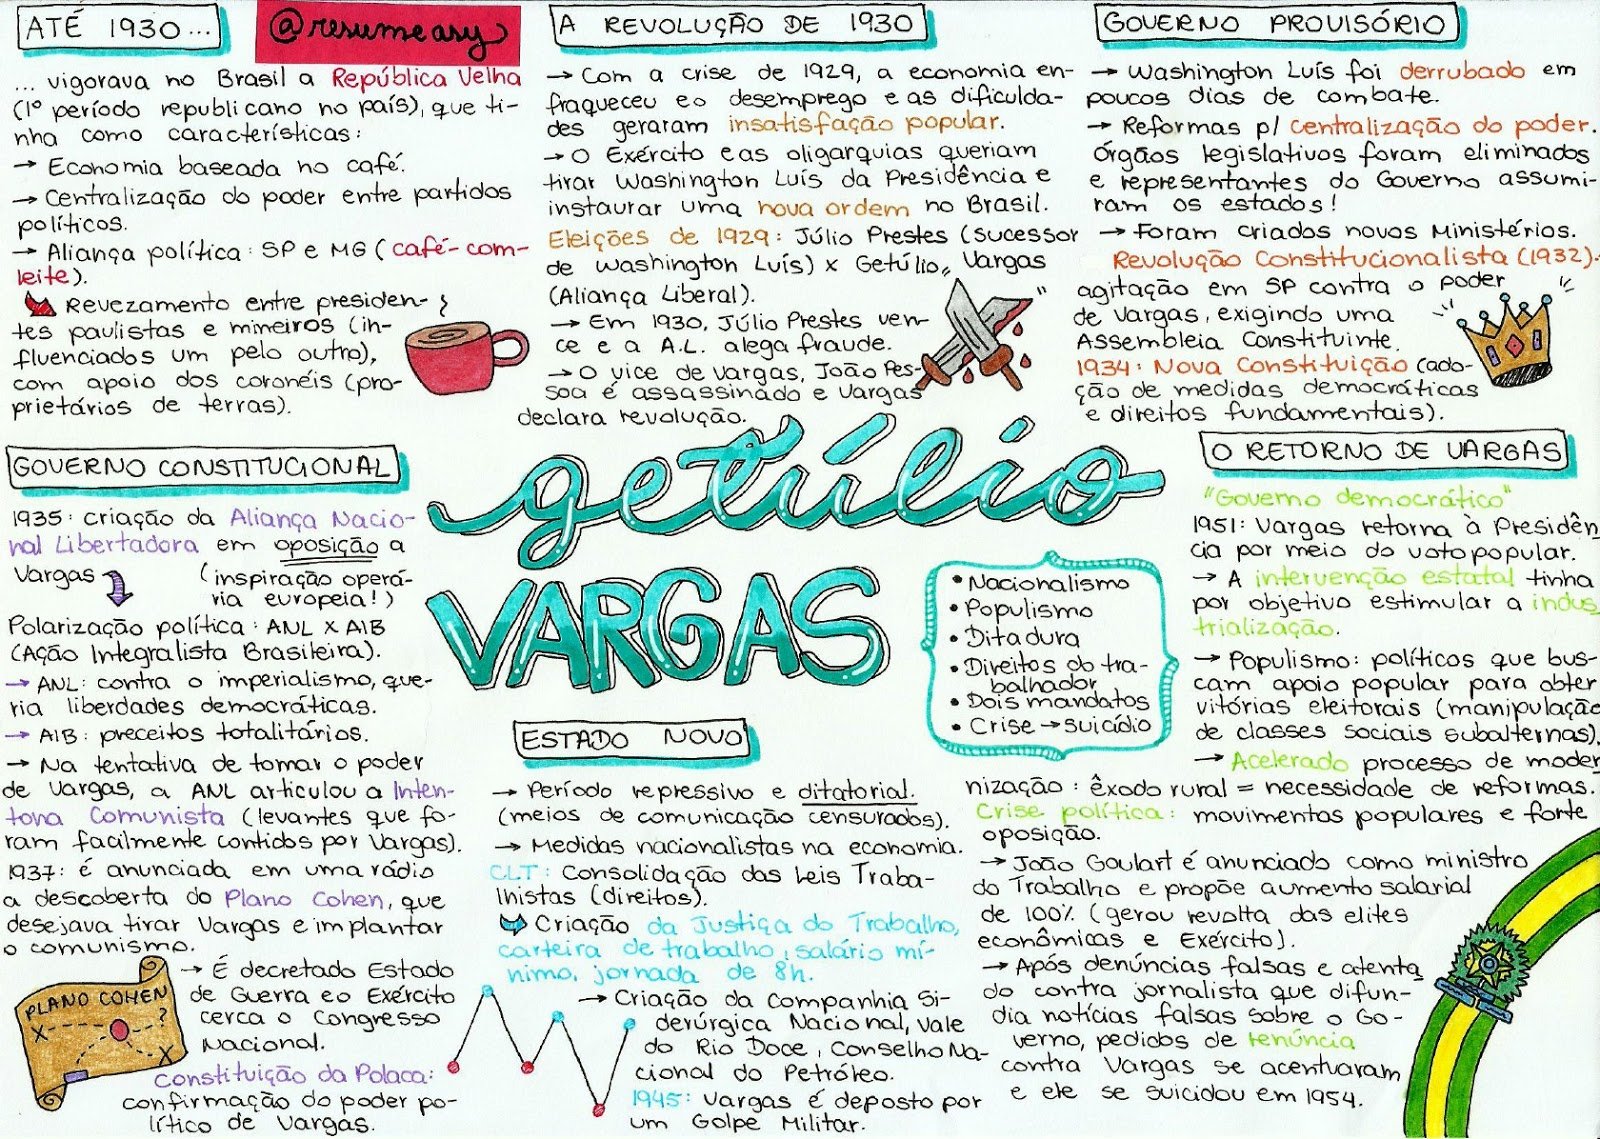 ATÉ 1930...
@resumeasy
... vigorava no Brasil a República Velha
(1º período republicano no país), que ti-
nha como características:
→ Economia baseada no café.
→ Centralização do poder entre partidos
políticos.
→ Aliança política: SP e MG (café-com-
leite).
Revezamento entre presiden-
tes paulistas e mineiros (in-
fluenciados um pelo outro),
com apoio dos coronéis (pro-
prietários de terras).
A REVOLUÇÃO DE 1930
→ Com a crise de 1929, a economia en-
fraqueceu e o desemprego e as dificulda-
des geraram insatisfação popular.
→ O Exército e as oligarquias queriam
tirar Washington Luís da Presidência e
instaurar uma nova ordem no Brasil.
Eleições de 1929: Júlio Prestes (sucessor
de Washington Luís) x Getúlio Vargas
(Aliança Liberal).
→ Em 1930, Júlio Prestes ven-
ce e a A.L. alega fraude.
→ O vice de Vargas, João Pes-
soa é assassinado e Vargas
declara revolução.
GOVERNO PROVISÓRIO
→ Washington Luís foi derrubado em
poucos dias de combate.
→ Reformas p/ centralização do poder.
Órgãos legislativos foram eliminados
e representantes do Governo assumi-
ram os estados!
→ Foram criados novos Ministérios.
Revolução Constitucionalista (1932):
agitação em SP contra o poder
de Vargas, exigindo uma
Assembleia Constituinte.
1934: Nova Constituição (ado-
ção de medidas democráticas
e direitos fundamentais).
getúlio
VARGAS
• Nacionalismo
• Populismo
• Ditadura
• Direitos do tra-
balhador
• Dois mandatos
• Crise → suicídio
GOVERNO CONSTITUCIONAL
1935: criação da Aliança Nacio-
nal Libertadora em oposição a
Vargas (inspiração operá-
ria europeia!)
Polarização política: ANL X AIB
(Ação Integralista Brasileira).
→ ANL: contra o imperialismo, que-
ria liberdades democráticas.
→ AIB: preceitos totalitários.
→ Na tentativa de tomar o poder
de Vargas, a ANL articulou a Inten-
tona Comunista (levantes que fo-
ram facilmente contidos por Vargas).
1937: é anunciada em uma rádio
a descoberta do Plano Cohen, que
desejava tirar Vargas e implantar
o comunismo.
PLANO COHEN
?
X
X
→ É decretado Estado
de Guerra e o Exército
cerca o Congresso
Nacional.
Constituição da Polaca:
confirmação do poder po-
lítico de Vargas.
ESTADO NOVO
→ Período repressivo e ditatorial.
(meios de comunicação censurados).
→ Medidas nacionalistas na economia.
CLT: Consolidação das Leis Traba-
lhistas (direitos).
Criação da Justiça do Trabalho,
carteira de trabalho, salário mí-
nimo, jornada de 8h.
→ Criação da Companhia Si-
derúrgica Nacional, Vale
do Rio Doce, Conselho Na-
cional do Petróleo.
1945: Vargas é deposto por
um Golpe Militar.
O RETORNO DE VARGAS
"Governo democrático"
1951: Vargas retorna à Presidên
cia por meio do voto popular.
→ A intervenção estatal tinha
por objetivo estimular a indus
trialização.
→ Populismo: políticos que bus-
cam apoio popular para obter
vitórias eleitorais (manipulação
de classes sociais subalternas).
→ Acelerado processo de moder
nização: êxodo rural = necessidade de reformas.
Crise política: movimentos populares e forte
oposição.
→ João Goulart é anunciado como ministro
do Trabalho e propõe aumento salarial
de 100% (gerou revolta das elites
econômicas e Exército).
→ Após denúncias falsas e atenta
do contra jornalista que difun-
dia notícias falsas sobre o Go-
verno, pedidos de renúncia
contra Vargas se acentuaram
e ele se suicidou em 1954.